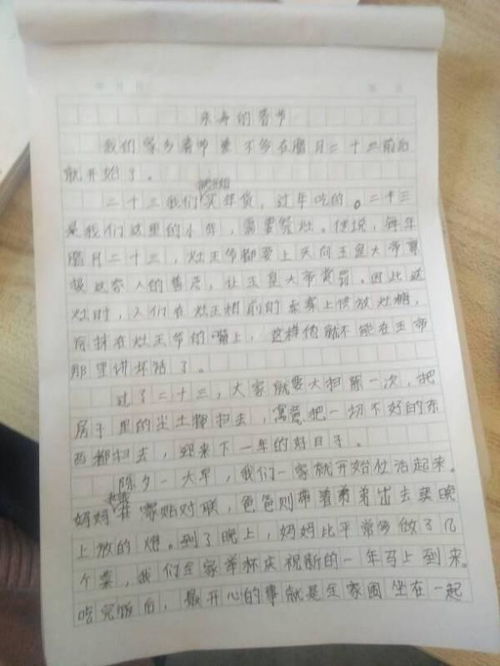 东寿的春节
我们家乡春节差不多在腊月二十三前后
就开始了。
二十三我们就开始买年货，过年吃的。二十三
是我们这里的小年，需要祭灶。传说，每年
腊月二十三，灶王爷都要上天向玉皇大帝禀
报这家人的善恶，让玉皇大帝赏罚。因此送
灶时，人们在灶王像前的桌案上供放灶糖，
有抹在灶王爷的嘴上，这样他就不能在玉帝
那里讲坏话了。
过了二十三，大家就要大扫除一次，把
房子里的尘土都扫去，寓意把一切不好的东
西都扫去，迎来下一年的好日子。
除夕一大早，我们一家就开始忙活起来。
妈妈在家贴对联，爸爸则带着弟弟出去买晚
上放的炮。到了晚上，妈妈比平常多做了几
个菜，我们全家举杯庆祝新的一年马上到来。
吃完饭后，最开心的事就是全家围坐在一起